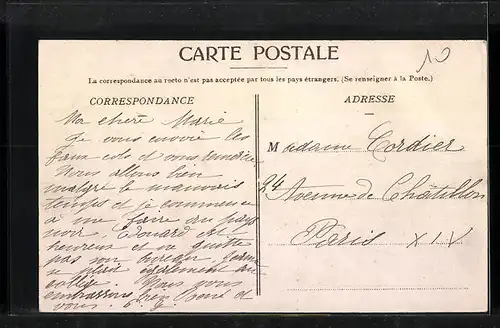 10
CARTE POSTALE
La correspondance au recto n'est pas acceptée par tous les pays étrangers. (Se renseigner à la Poste.)
CORRESPONDANCE
Ma chère Marie
Je vous envoie les
faux cols et vous remercie
Nous allons bien
malgré le mauvais
temps et je commence
à me faire au pays
noir. Edouard est
heureux et ne quitte
pas son
se plait également au
collège. Nous vous
embrassons bien René et
vous.
ADRESSE
Madame Cordier
94
Avenue de Châtillon
Paris XIV